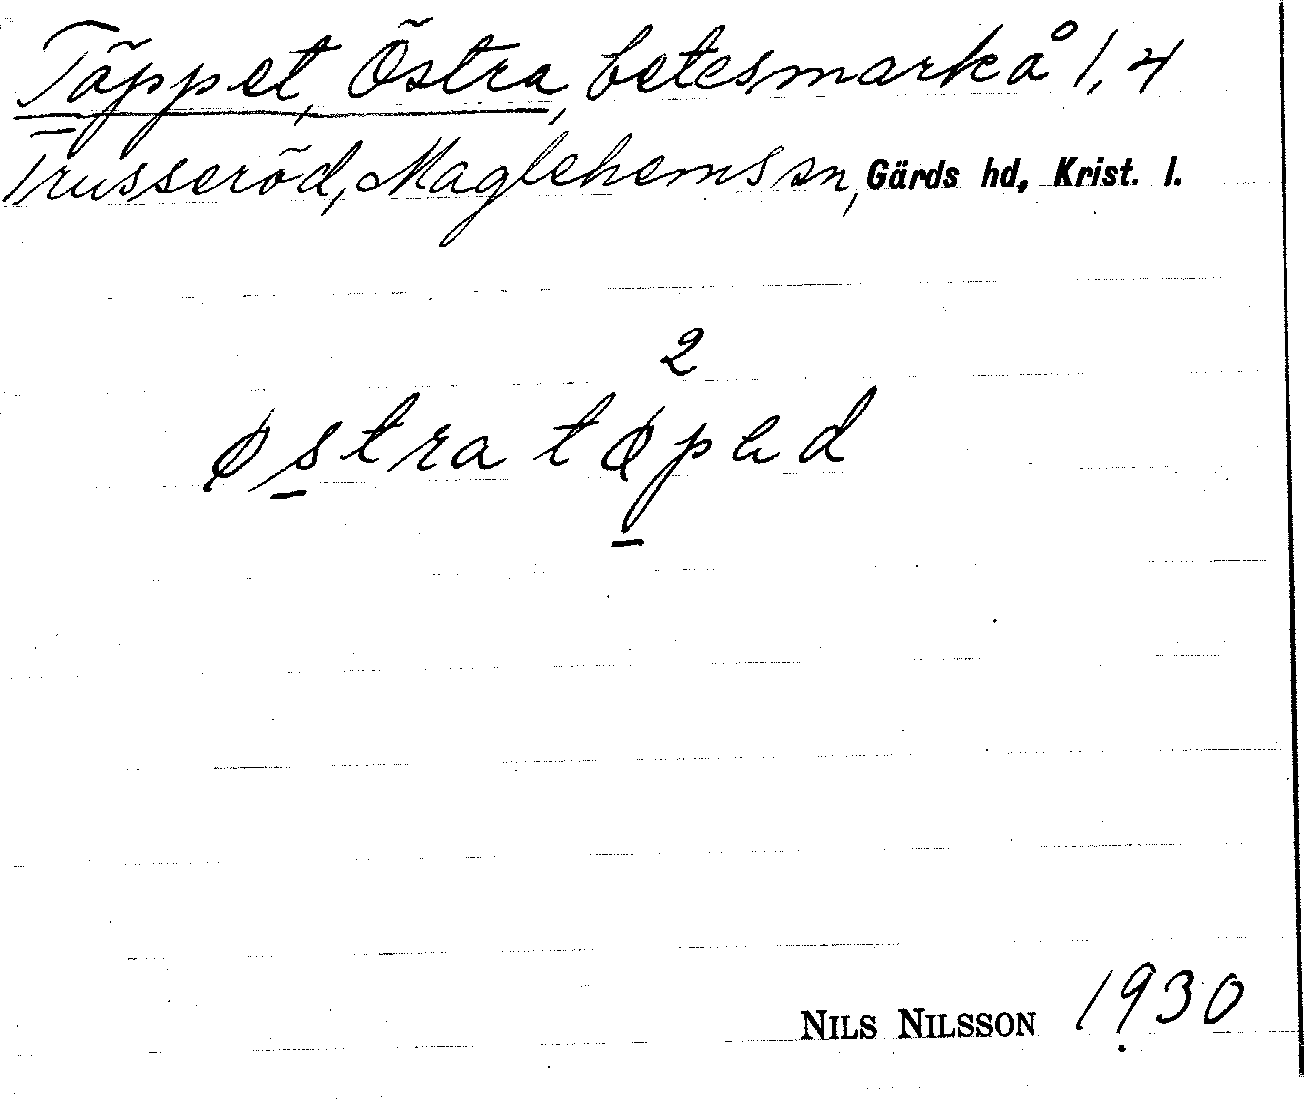 Töppet, Östra, betesmark å 1,4
Trusseröd, Maglehems sn, Gärds hd, Krist. l.
2
østra tøpad
NILS NILSSON 1930